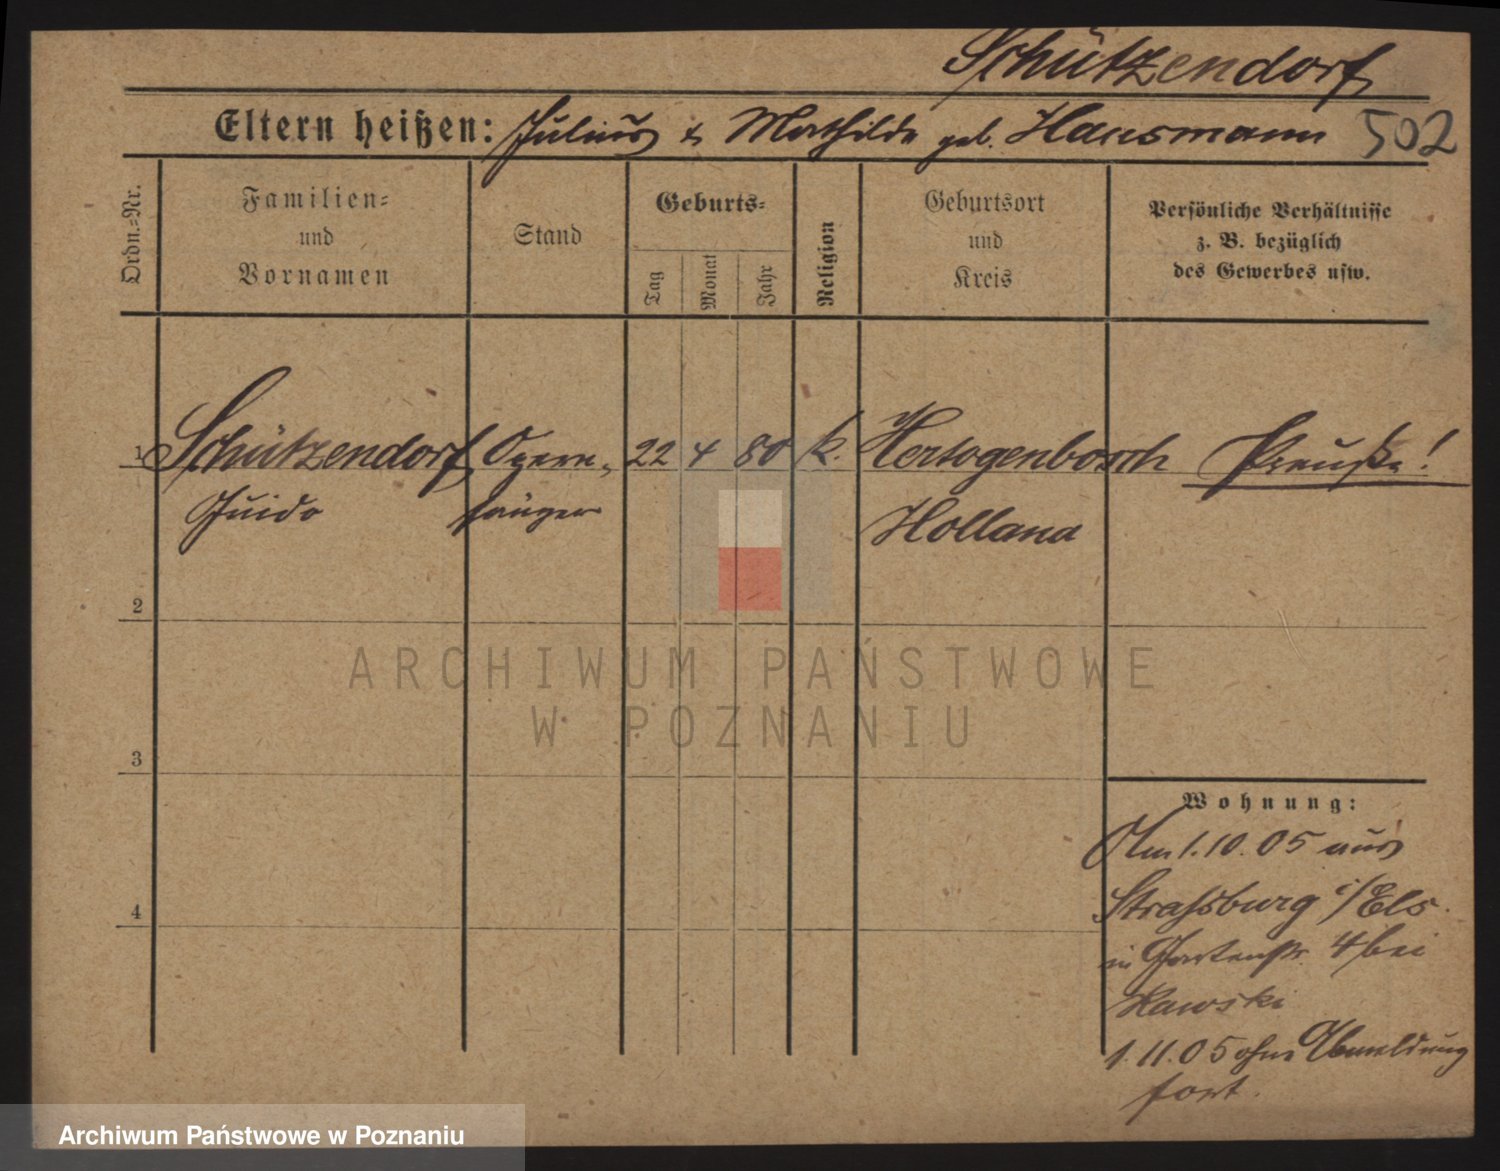 Schützendorf
Eltern heißen: Julius & Mathilde geb. Hausmann 502
Ordn.=Nr.
Familien=
und
Vornamen
Stand
Geburts=
Tag
Monat
Jahr
Religion
Geburtsort
und
Kreis
Persönliche Verhältnisse
z. B. bezüglich
des Gewerbes usw.
1 Schützendorf Opern- 22 4 80 k. Hertogenbosch Preuße!
Guido sänger Holland
2
3
4
Wohnung:
Am 1.10.05 aus
Strassburg i/Els.
in Gartenstr. 4 bei
Rawski
1.11.05 ohne Abmeldung
fort.
ARCHIWUM PAŃSTWOWE
W POZNANIU
Archiwum Państwowe w Poznaniu